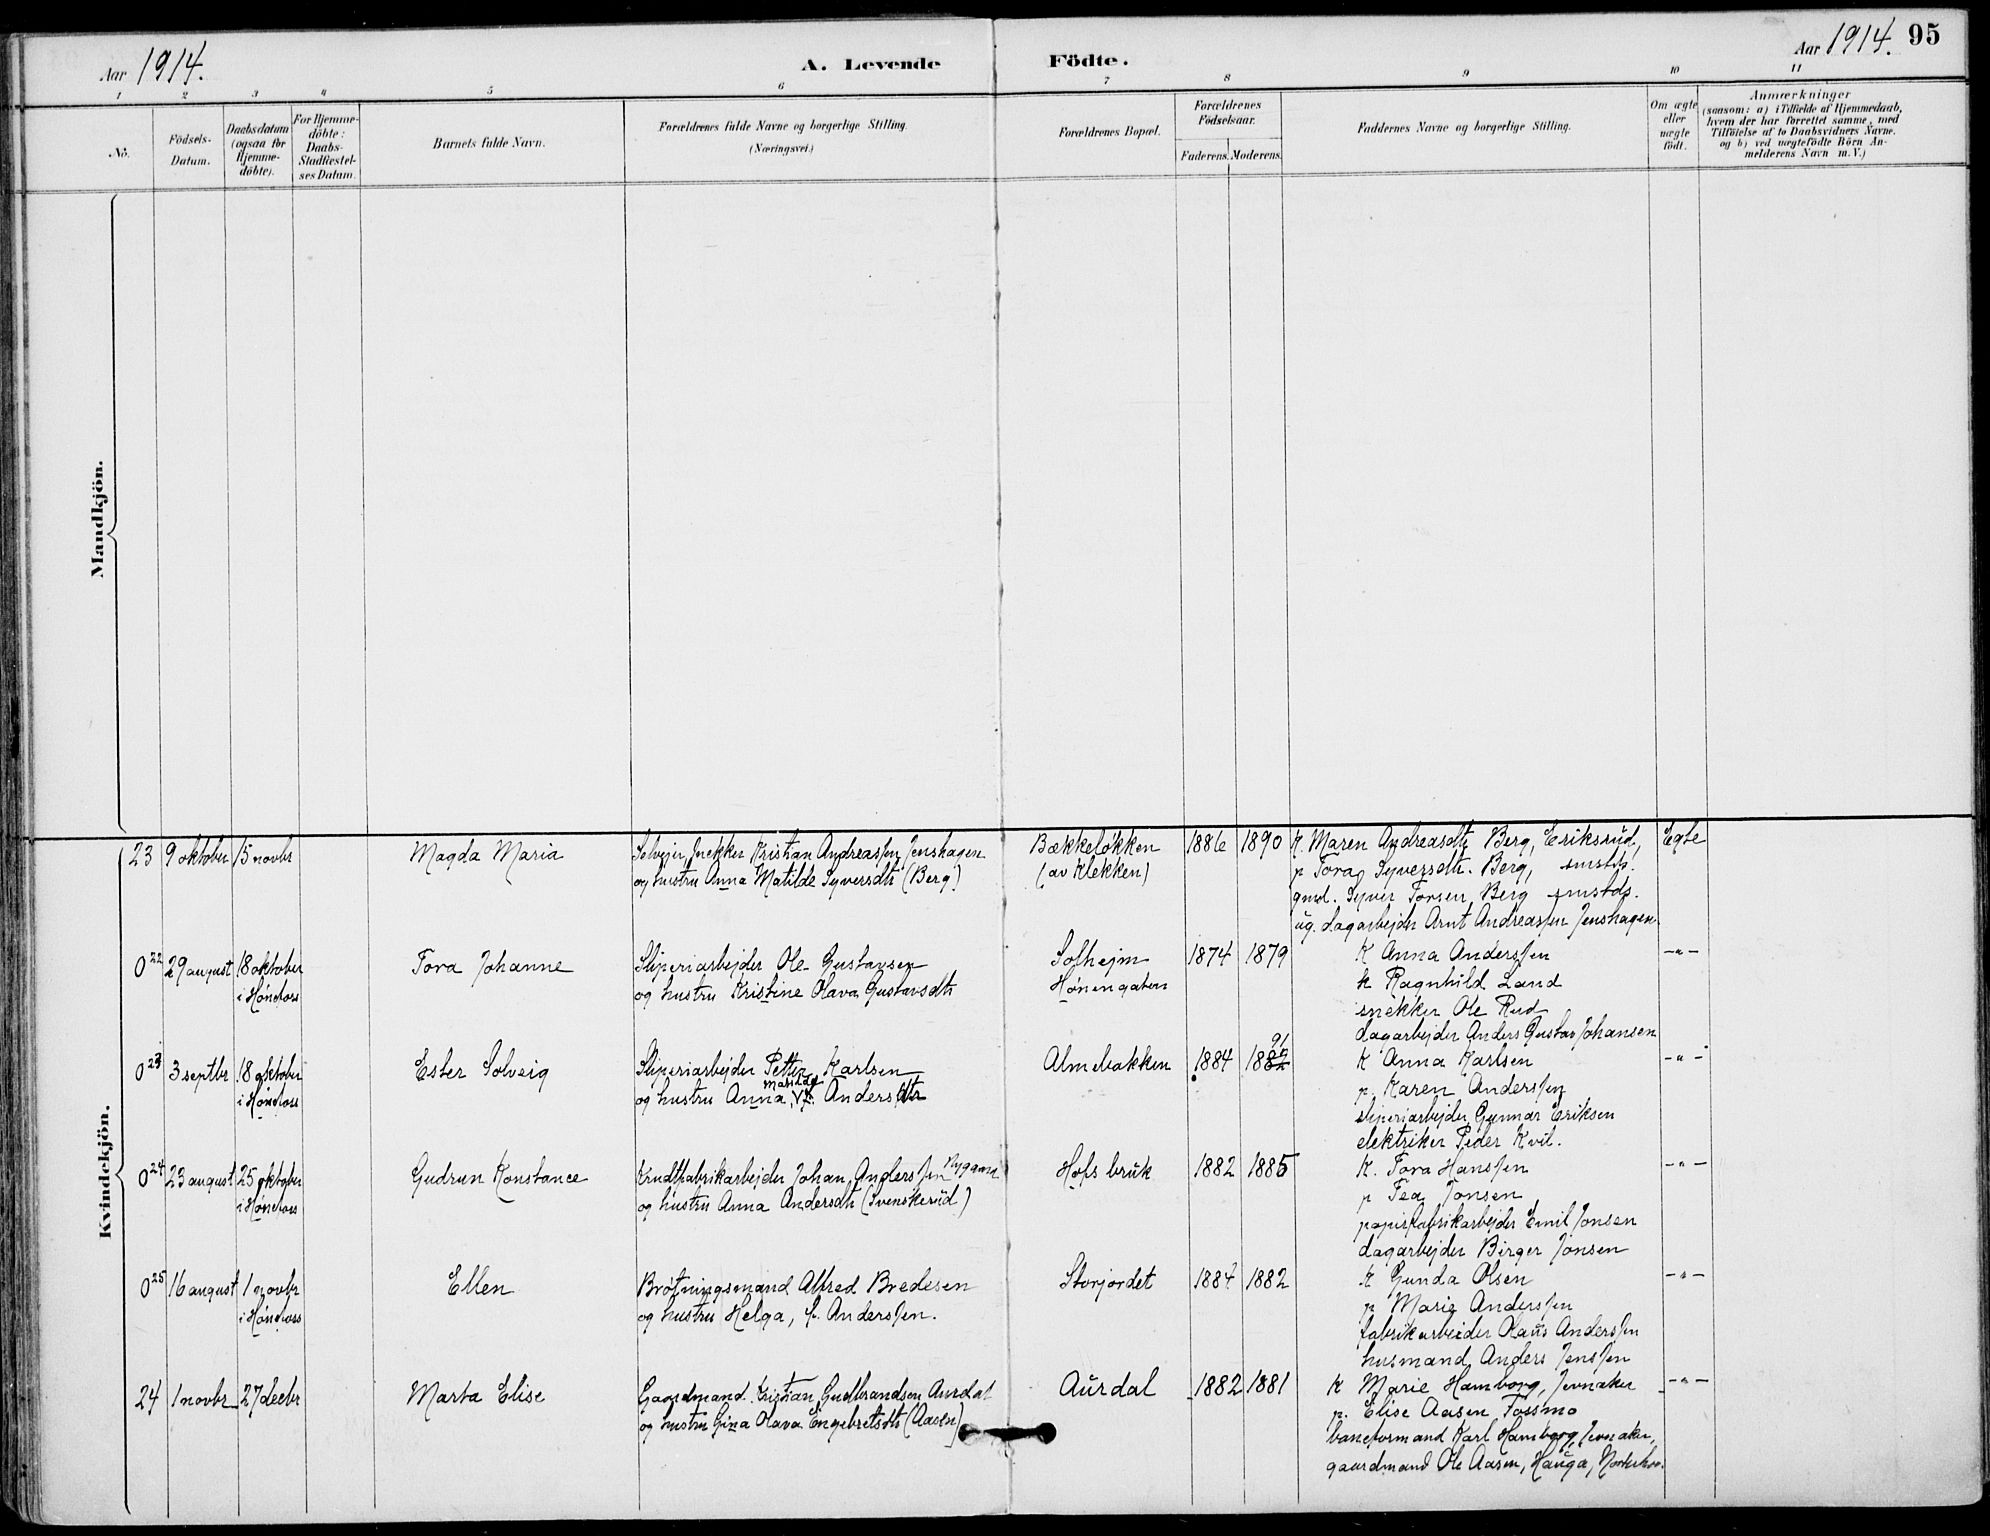 Aar 1914.
A. Levende Födte.
Aar 1914. 95
1 2 3 4 5 6 7 8 9 10 11
No.
Födsels-Datum.
Daabsdatum (ogsaa for Hjemmedöbte).
For Hjemmedöbte: Daabs-Stadfæstelses Datum.
Barnets fulde Navn.
Forældrenes fulde Navne og borgerlige Stilling.
(Næringsvei.)
Forældrenes Bopæl.
Forældrenes Födselsaar.
Faderens. Moderens.
Faddernes Navne og borgerlige Stilling.
Om ægte eller uægte födt.
Anmærkninger
(saasom: a) i Tilfælde af Hjemmedaab,
hvem der har forrettet samme, med
Tilföielse af to Daabsvidners Navne.
og b) ved uægtefödte Börn An-
melderens Navn m. V.)
Mandkjön.
Kvindekjön.
23 9 oktober 15 novbr Magda Maria
Selveier, snekker Kristian Andreassen Jenshagen
og hustru Anna Matilde Syversdtr (Berg)
Bækkeløkken
(av Klekken)
1886 1890
K. Maren Andreasdtr Berg, Eriksrud,
p Tora Syversdtr. Berg,
gmd. Syver Torsen Berg
ug. dagarbejder Arnt Andreassen Jenshagen.
Egte
0 22 29 august 18 oktober
i Hønefoss
Tora Johanne
Sliperiarbejder Ole Gustavsen
og hustru Kristine Olava Gustavsdtr
Solhejm
Hønengaten
1874 1879
K Anna Anderssen
k Ragnhild Land
snekker Ole Rud
dagarbejder Anders Gustav Johansen
-"-
0 23 3 septbr 18 oktober
i Hønefoss
Ester Solveig
Sliperiarbejder Petter Karlsen
og hustru Anna Matilde Andersdtr
Almebakken
1884 1882 91
K Anna Karlsen
p. Karen Anderssen
sliperiarbejder Gunnar Eriksen
elektriker Peder Kvil.
-"-
0 24 23 august 25 oktober
i Hønefoss
Gudrun Konstance
Krudtfabrikarbejder Johan Anderssen Nygaard
og hustru Anna Andersdtr (Svenskerud)
Hofs bruk
1882 1885
K. Tora Hanssen
p Tea Jonsen
papirfabrikarbejder Emil Jonsen
dagarbejder Birger Jonsen
-"-
0 25 16 august 1 novbr
i Hønefoss
Ellen
Brøtningsmand Alfred Bredesen
og hustru Helga, f. Anderssen.
Storjordet
1884 1882
K Gunda Olsen
p Marie Anderssen
fabrikarbeider Olaus Anderssen
husmand Anders Jenssen
-"-
24 1 novbr 27 decbr Marta Elise
Gaardmand Kristian Gudbrandsen Aurdal
og hustru Gina Olava Engebretsdtr (Aasen)
Aurdal
1882 1881
K Marie Hamborg, Jevnaker
p. Elise Aasen Fossmo
baneformand Karl Hamborg, Jevnaker,
gaardmand Ole Aasen, Hauga,
-"-